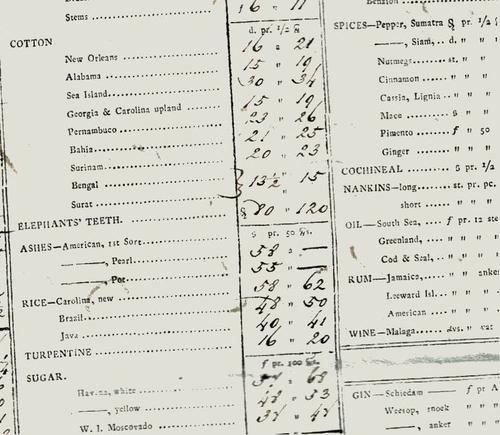 Stems 16 " 11
d. pr. 1/2 ℔
COTTON
New Orleans 16 " 21
Alabama 15 " 19
Sea Island 30 " 34
Georgia & Carolina upland 15 " 19
Pernambuco 23 " 26
Bahia 21 " 25
Surinam 20 " 23
Bengal 13½ " 15
Surat "
ELEPHANTS' TEETH. 80 " 120
s pr. 50 ℔s.
ASHES—American, 1st Sort 58 " —
———, Pearl 55 " —
———, Pot 58 " 62
RICE—Carolina, new 48 " 50
Brazil 40 " 41
Java 16 " 20
TURPENTINE
f pr. 100 ℔s.
SUGAR.
Havana, white " 68
———, yellow 48 " 53
W. I. Moscovado 37 " 47
SPICES—Pepper, Sumatra s pr. 1/2
———, Siam, d. " "
Nutmegs st. " "
Cinnamon " " "
Cassia, Lignia " " "
Mace s " "
Pimento f " 50
Ginger " " "
COCHINEAL s pr. 1/2
NANKINS—long st. pr. pc.
short " " "
OIL—South Sea, f pr. 12 ste
Greenland, " " "
Cod & Seal, " " "
RUM—Jamaica, " " anker
Leeward Isl. " " "
American " " "
WINE—Malaga " vat
GIN—Schiedam f pr A
Weesop, snoek " " "
———, anker " "